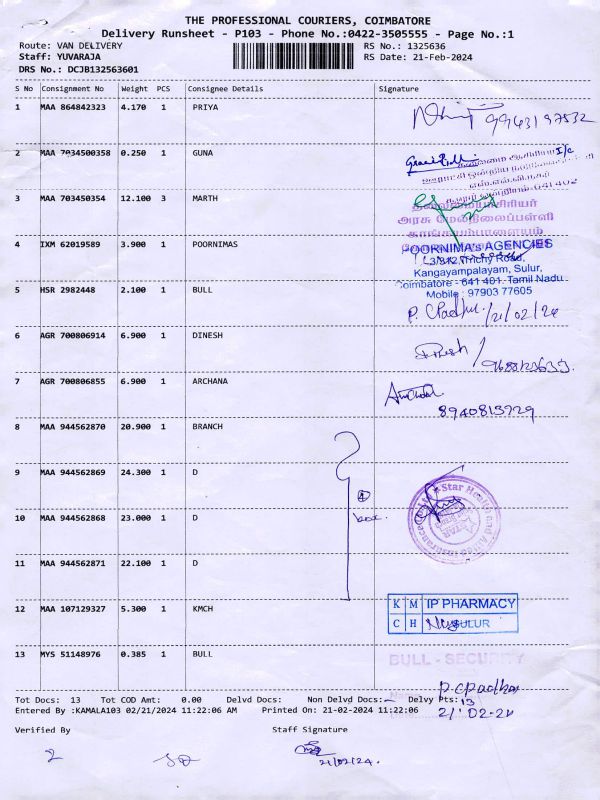 THE PROFESSIONAL COURIERS, COIMBATORE
Delivery Runsheet - P103 - Phone No.:0422-3505555 - Page No.:1
Route: VAN DELIVERY RS No.: 1325636
Staff: YUVARAJA RS Date: 21-Feb-2024
DRS No.: DCJB132563601
S No Consignment No Weight PCS Consignee Details Signature
1 MAA 864842323 4.170 1 PRIYA
9943197532
2 MAA 7034500358 0.250 1 GUNA
I/c
தலைமை ஆசிரியர்
641 402
3 MAA 703450354 12.100 3 MARTH
தலைமையாசிரியர்
அரசு மேல்நிலைப்பள்ளி
காங்கயம்பாளையம்
4 IXM 62019589 3.900 1 POORNIMAS
POORNIMA's AGENCIES
Trichy Road,
Kangayampalayam, Sulur,
Coimbatore - 641 401. Tamil Nadu
Mobile : 97903 77605
5 HSR 2982448 2.100 1 BULL
P. CPadhu. /21/02/24
6 AGR 700806914 6.900 1 DINESH
Dinesh /
7 AGR 700806855 6.900 1 ARCHANA
8940815729
8 MAA 944562870 20.900 1 BRANCH
9 MAA 944562869 24.300 1 D
4
box.
Star Health and Allied Insurance
10 MAA 944562868 23.000 1 D
11 MAA 944562871 22.100 1 D
12 MAA 107129327 5.300 1 KMCH
K M IP PHARMACY
C H SULUR
13 MYS 51148976 0.385 1 BULL
BULL - SECURITY
P. CPadhu
21-02-24
Tot Docs: 13 Tot COD Amt: 0.00 Delvd Docs: Non Delvd Docs: Delvy Pts: 13
Entered By :KAMALA103 02/21/2024 11:22:06 AM Printed On: 21-02-2024 11:22:06
Verified By Staff Signature
21/02/24.